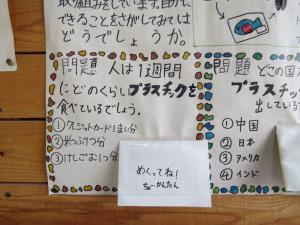 取り組みをしています。自分で
できることをさがしてみては
どうでしょうか。
問題 人は1週間
にどのくらいプラスチックを
食べているでしょう。
①クレジットカード1まい分
②米つぶ1つ分
③けしごむ1つ分
めくってね!
問題 どこの国
プラスチッ
出してい
①中国
②日本
③アメリカ
④インド